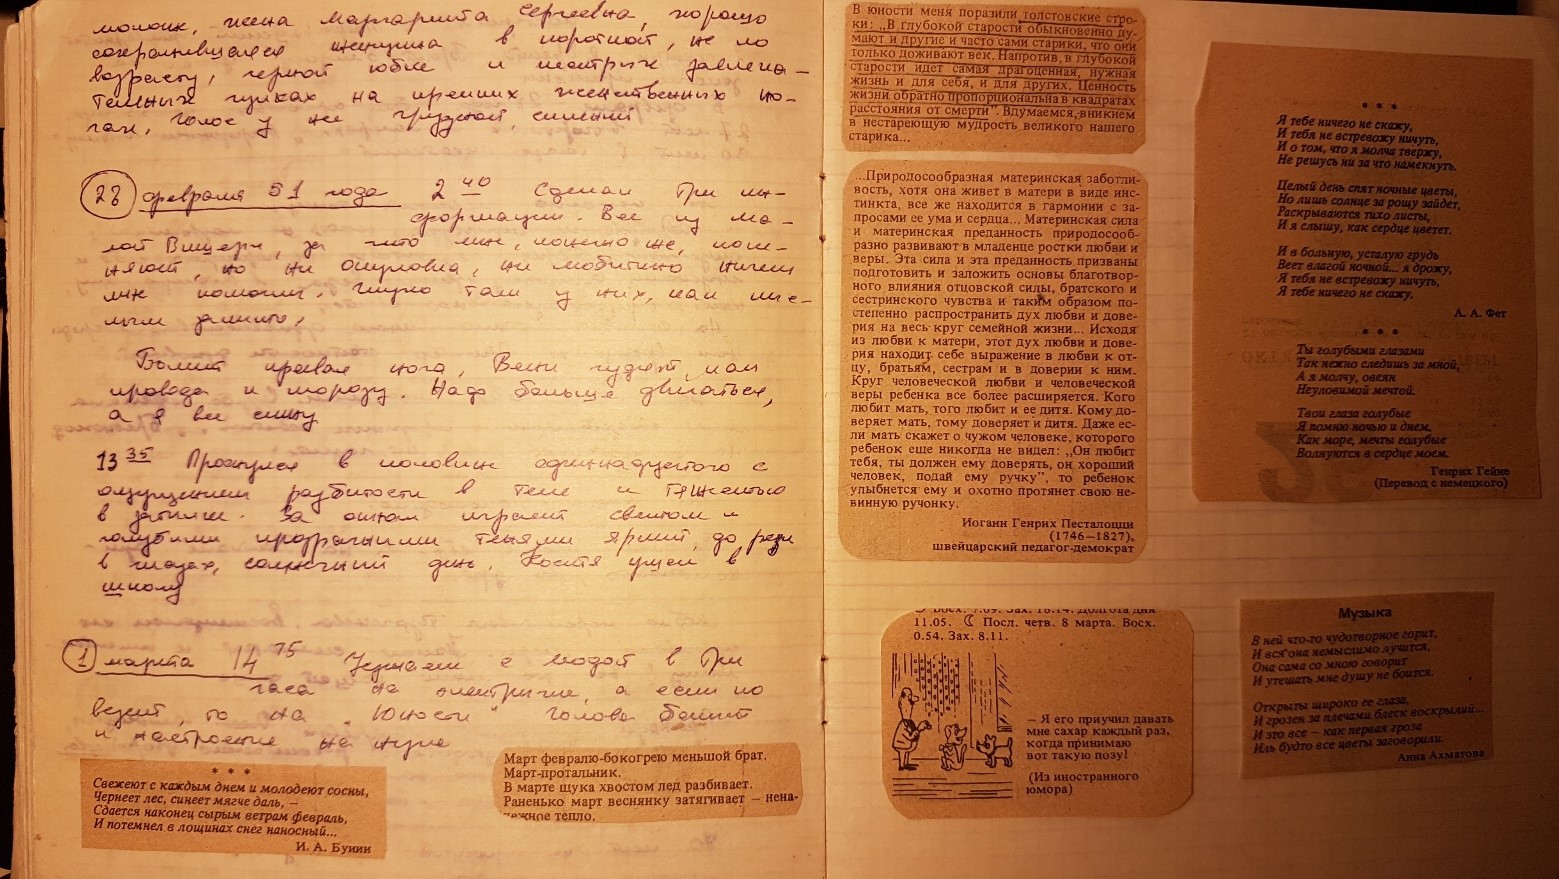 молоди, жена Маргарита Сергеевна, хорошо
сохранившаяся женщина в короткой, не по
возрасту, черной юбке и пестрых
чулках на крепких женственных но-
гах. Голос у нее грудной, сильный
28 февраля 91 года 2 40 Сделал три ин-
формации. Все из ма-
за что мне, конечно же,
но ни ни ничем
мне помогли. Глухо там у них, как
Болит правая нога, Вены гудят, как
провода к морозу. Надо больше двигаться,
а я все сижу
13 35 Проснулся в половине одиннадцатого с
ощущением разбитости в теле и тяжестью
в затылке. За окном играет светом и
голубыми прозрачными тенями яркий, до рези
в глазах, солнечный день. Костя ушел в
школу
1 марта 14 15 Уезжаем с в три
часа на электричке, а если по
везет, то на "Юности" Голова болит
и настроение на нуле
* * *
Свежеют с каждым днем и молодеют сосны,
Чернеет лес, синеет мягче даль, —
Сдается наконец сырым ветрам февраль,
И потемнел в лощинах снег наносный...
И. А. Бунин
Март февралю-бокогрею меньшой брат.
Март-протальник.
В марте щука хвостом лед разбивает.
Раненько март веснянку затягивает — нена-
дежное тепло.
В юности меня поразили толстовские стро-
ки: „В глубокой старости обыкновенно ду-
мают и другие и часто сами старики, что они
только доживают век. Напротив, в глубокой
старости идет самая драгоценная, нужная
жизнь и для себя, и для других. Ценность
жизни обратно пропорциональна в квадратах
расстояния от смерти". Вдумаемся, вникнем
в нестареющую мудрость великого нашего
старика...
...Природосообразная материнская заботли-
вость, хотя она живет в матери в виде инс-
тинкта, все же находится в гармонии с за-
просами ее ума и сердца... Материнская сила
и материнская преданность природосооб-
разно развивают в младенце ростки любви и
веры. Эта сила и эта преданность призваны
подготовить и заложить основы благотвор-
ного влияния отцовской силы, братского и
сестринского чувства и таким образом по-
степенно распространить дух любви и дове-
рия на весь круг семейной жизни... Исходя
из любви к матери, этот дух любви и дове-
рия находит себе выражение в любви к от-
цу, братьям, сестрам и в доверии к ним.
Круг человеческой любви и человеческой
веры ребенка все более расширяется. Кого
любит мать, того любит и ее дитя. Кому до-
веряет мать, тому доверяет и дитя. Даже ес-
ли мать скажет о чужом человеке, которого
ребенок еще никогда не видел: „Он любит
тебя, ты должен ему доверять, он хороший
человек, подай ему ручку", то ребенок
улыбнется ему и охотно протянет свою не-
винную ручонку.
Иоганн Генрих Песталоцци
(1746—1827),
швейцарский педагог-демократ
Восх. 7.09. Зах. 18.14. Долгота дня
11.05. ☾ Посл. четв. 8 марта. Восх.
0.54. Зах. 8.11.
— Я его приучил давать
мне сахар каждый раз,
когда принимаю
вот такую позу!
(Из иностранного
юмора)
* * *
Я тебе ничего не скажу,
И тебя не встревожу ничуть,
И о том, что я молча твержу,
Не решусь ни за что намекнуть.
Целый день спят ночные цветы,
Но лишь солнце за рощу зайдет,
Раскрываются тихо листы,
И я слышу, как сердце цветет.
И в больную, усталую грудь
Веет влагой ночной... я дрожу,
Я тебя не встревожу ничуть,
Я тебе ничего не скажу.
А. А. Фет
* * *
Ты голубыми глазами
Так нежно следишь за мной,
А я молчу, овеян
Неуловимой мечтой.
Твои глаза голубые
Я помню ночью и днем.
Как море, мечты голубые
Волнуются в сердце моем.
Генрих Гейне
(Перевод с немецкого)
Музыка
В ней что-то чудотворное горит,
И вся она немыслимо лучится,
Она сама со мною говорит
И утешать мне душу не боится.
Открыты широко ее глаза,
И грозен за плечами блеск воскрылий...
И это все — как первая гроза
Иль будто все цветы заговорили.
Анна Ахматова